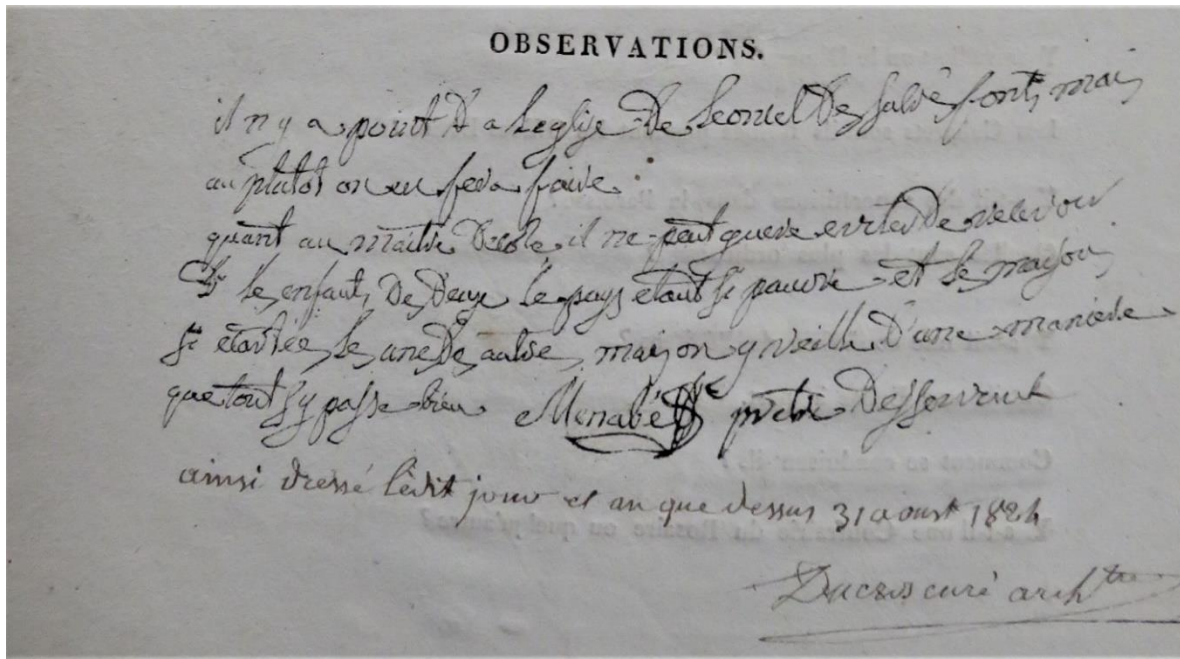 OBSERVATIONS.
il n y a point D a Leglise De Leoncel Des falxe fonts mais
au plutot on en fera faire.
quant au maitre Decole, il ne peut guere eviter de recevoir
les enfants De Deux le pays etant si pauvre et le maisons
si ecartées les une De autre, mais on y veille D'une maniere
que tout s'y passe bien Menabé ptre Desservant
ainsi dressé ledit jour et an que dessus 31 aoust 1824
curé arch^tre